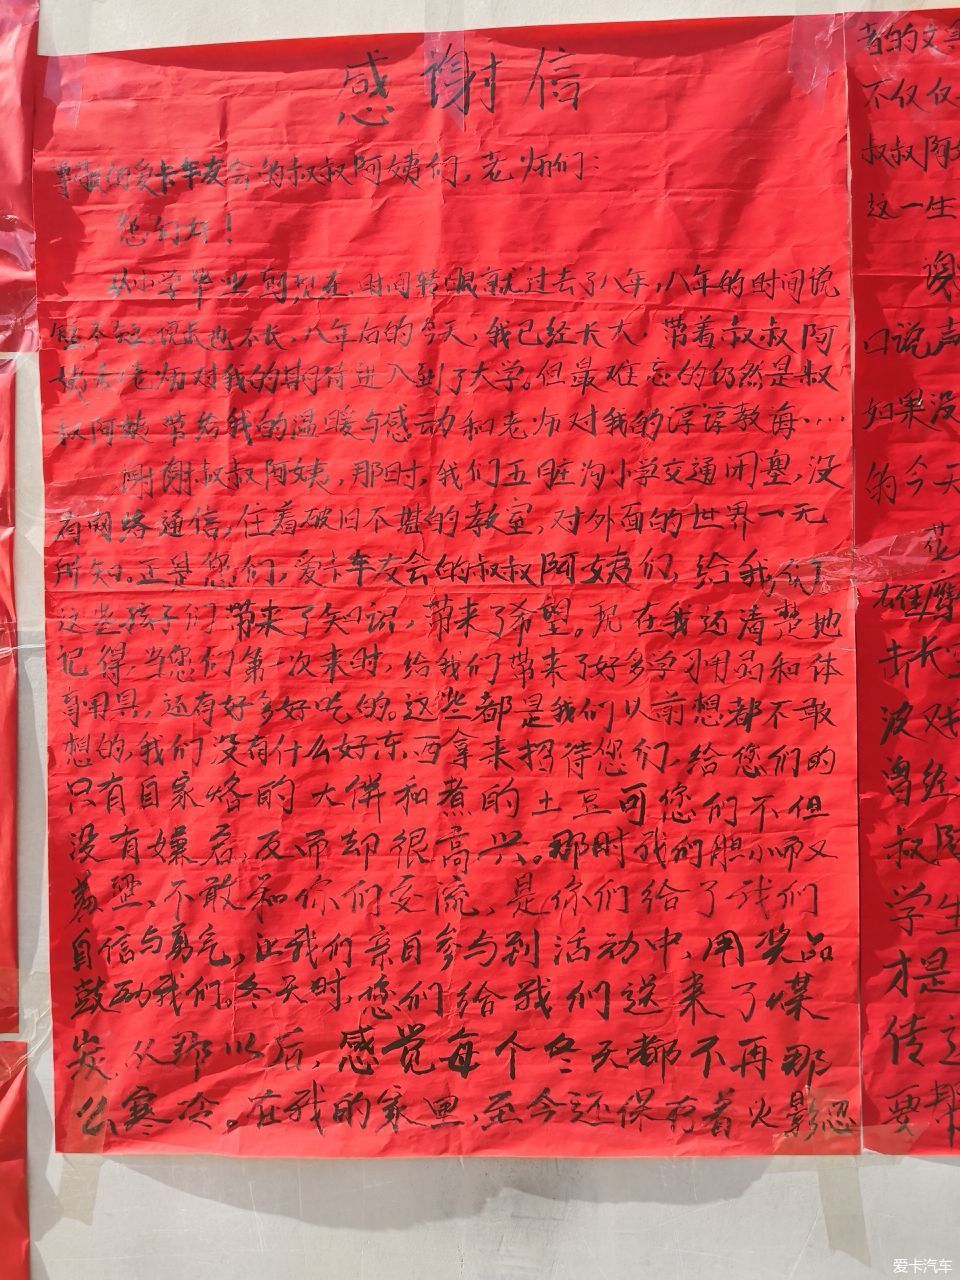 感谢信
尊敬的爱卡车友会的叔叔阿姨们，老师们：
您们好！
从小学毕业到现在，时间转眼就过去了八年，八年的时间说
短不短，说长也不长，八年后的今天，我已经长大，带着叔叔阿
姨和老师对我的期待进入到了大学。但最难忘的仍然是叔
叔阿姨带给我的温暖与感动和老师对我的谆谆教诲…
谢谢叔叔阿姨，那时，我们五脏沟小学交通闭塞，没
有网络通信，住着破旧不堪的教室，对外面的世界一无
所知。正是您们，爱卡车友会的叔叔阿姨们，给我们
这些孩子们带来了知识，带来了希望。现在我还清楚地
记得，当您们第一次来时，给我们带来了好多学习用品和体
育用具，还有好多好吃的。这些都是我们以前想都不敢
想的，我们没有什么好东西拿来招待您们，给您们的
只有自家烙的大饼和煮的土豆可您们不但
没有嫌弃，反而却很高兴。那时我们胆小而又
羞涩，不敢和你们交流，是你们给了我们
自信与勇气，让我们亲自参与到活动中，用奖品
鼓动我们。冬天时，您们给我们送来了煤
炭，从那以后，感觉每个冬天都不再那
么寒冷。在我的家里，至今还保存着火影忍
不仅仅
叔叔阿姨
这一生
口说声
如果没
的今天
花
雄鹰
击长
波
曾经
叔阿
学生
才是
传这
要帮
爱卡汽车